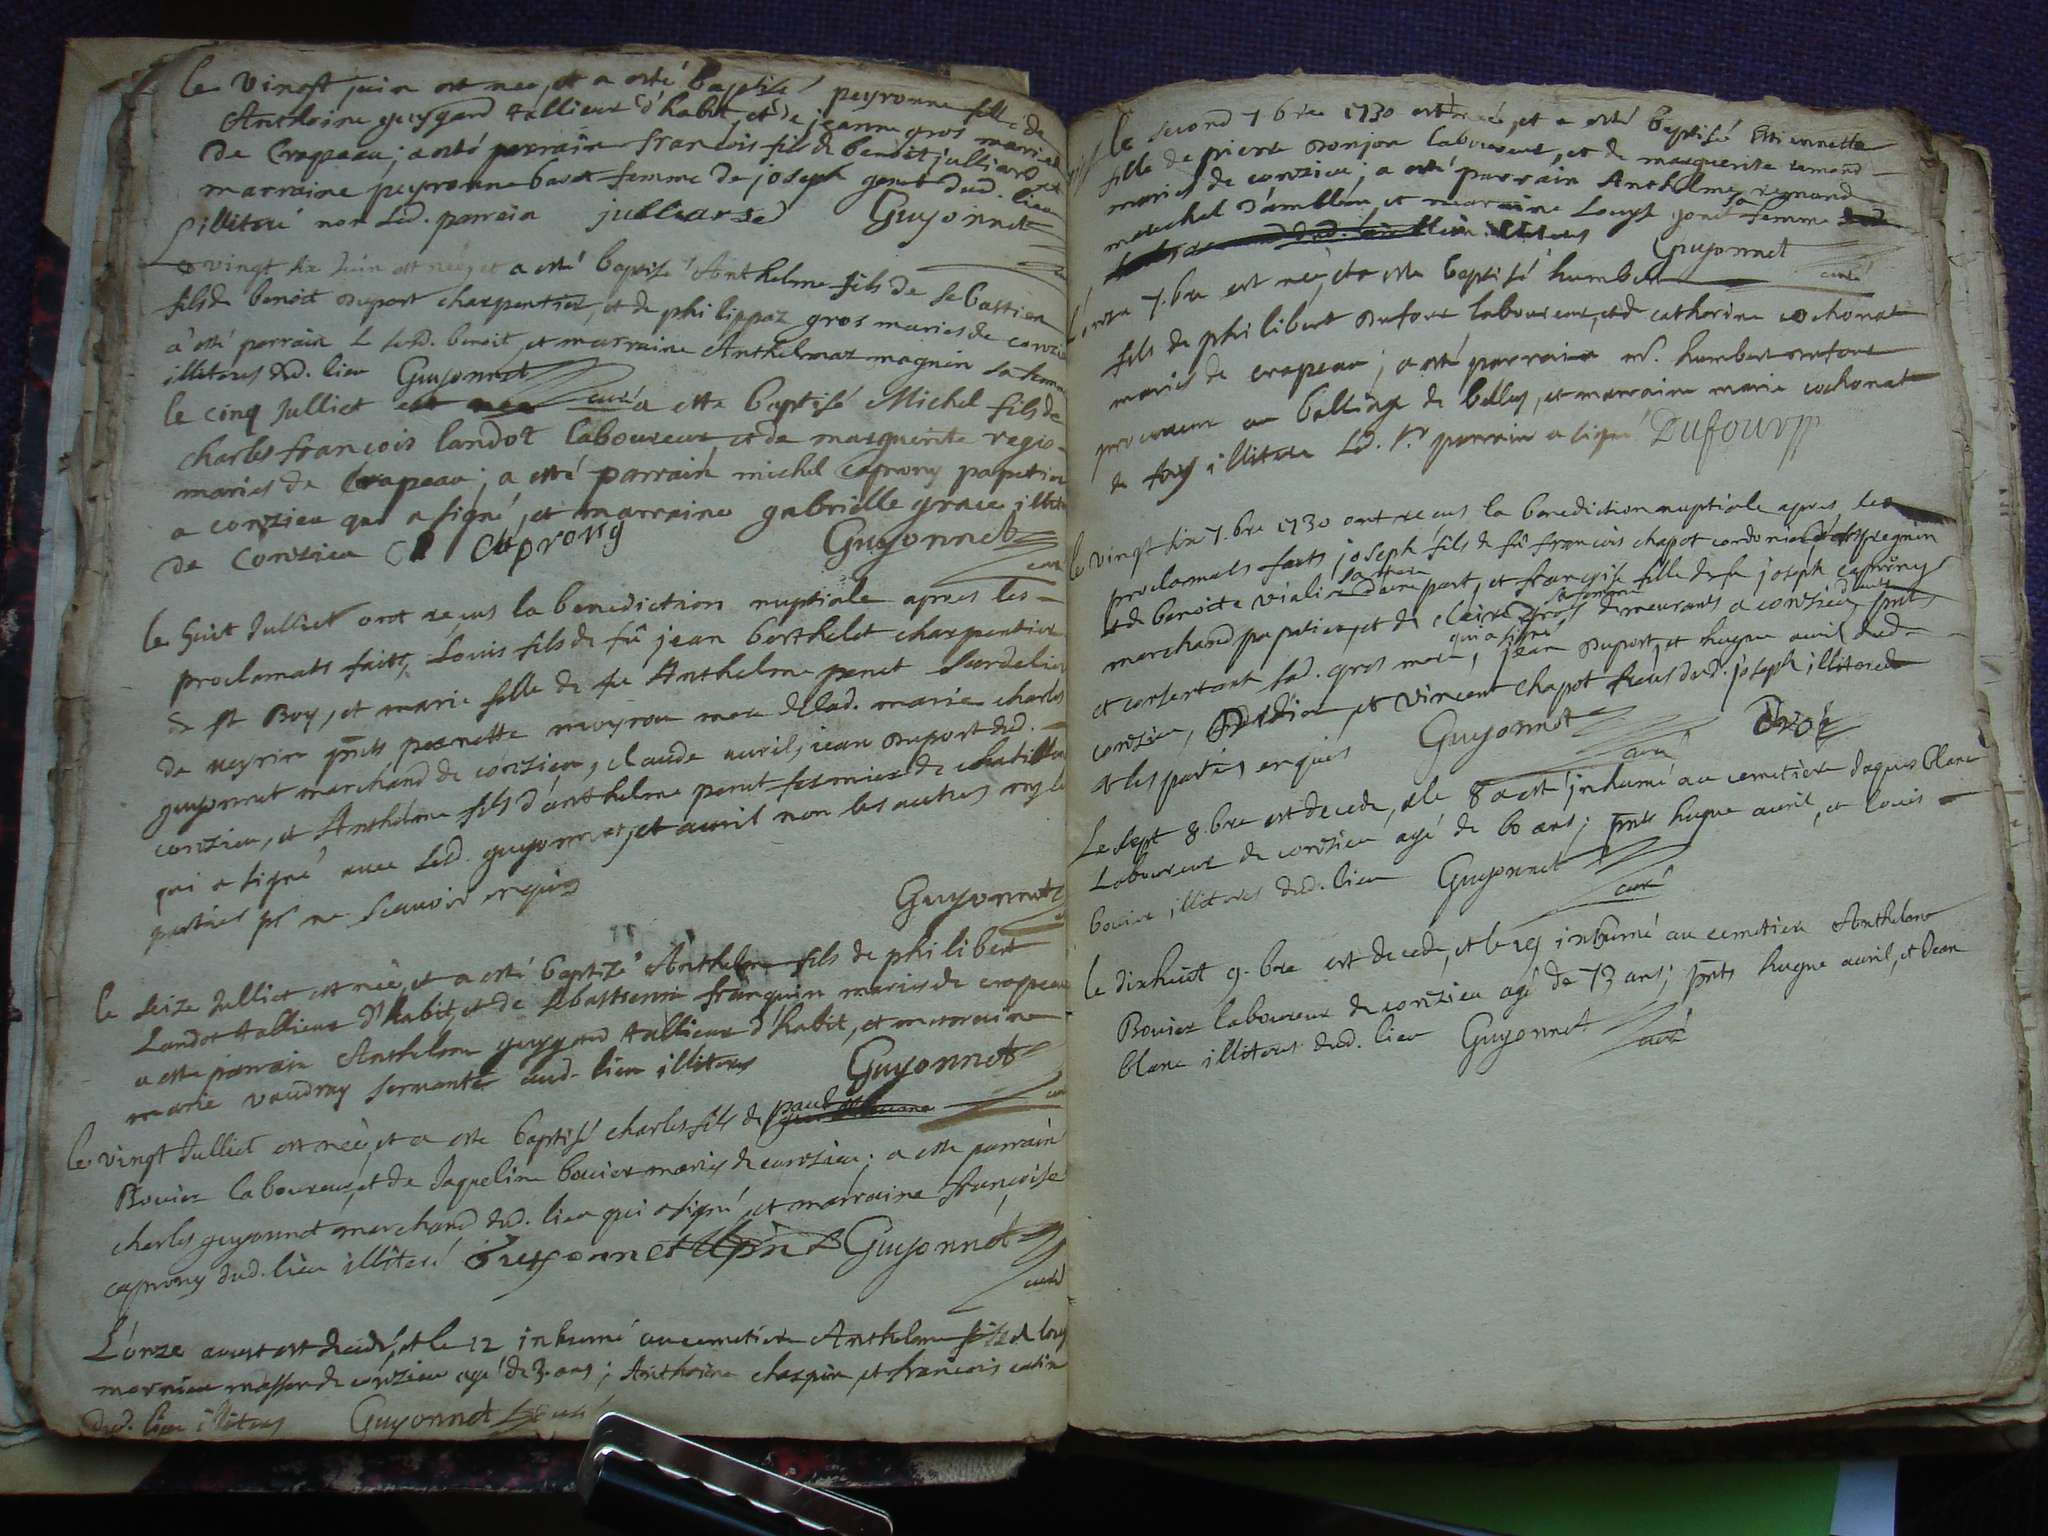 le vingt juin est née, et a esté baptisé peyronne fille de
Anthoine guygard tallieur d'habit, et de jeanne gros mariés
de Crapeau; a esté parrain francois fils de benoit julliard et
marraine peyronne femme de joseph genet dud. lieu
illiteré non led. parrain julliard Guyonnet
vingt six juin est née, et a esté baptisé Anthelme fils de sebastien
fils de benoit Duport charpentier, et de philippaz gros mariés de conzieu
a esté parrain led. benoit, et marraine Anthelmaz magnin sa femme
illiteres dud. lieu Guyonnet curé
le cinq Julliet est née a esté baptisé Michel fils de
charles francois landot laboureur et de marguerite
mariés de Crapeau; a esté parrain michel caprony papetier
a conzieu qui a signé, et marraine gabrielle grace illiteré
de Conzieu Caprony Guyonnet curé
le huit Julliet ont reçus la benediction nuptiale apres les
proclamats faits, Louis fils de fû jean berthelet charpentier
de st Boy, et marie fille de fû Anthelme penet
de veyrin pnts pernette moyrou mere de lad. marie charles
guyonnet marchand de conzieu, claude avril, jean Duport dud.
conzieu, et Anthelme fils d'anthelme penet fermier de
qui a signé avec led. guyonnet, et avril non les autres ny les
parties pr ne scavoir enquis
Guyonnet
le seize Julliet est née, et a esté baptizé Anthelme fils de philibert
Landot tallieur d'habit, et de sebastienne franquin mariés de crapeau
a esté parrain Anthelme guygard tallieur d'habit, et marraine
marie vaudray servante aud. lieu illiteres Guyonnet
curé
le vingt Julliet est née, et a esté baptisé charles fils de paul
Bovier laboureur, et de Jaqueline bovier mariés de conzieu; a esté parrain
charles guyonnet marchand dud. lieu qui a signé, et marraine françoise
caprony dud. lieu illiteré Guyonnet Guyonnet
curé
L'onze aoust est decedé, et le 12 inhumé au cemetiere Anthelme fils de louis
mornieu masson de conzieu agé de 3. ans; Anthoine chapin, et francois
dud. lieu illiteres Guyonnet curé
le second 7.bre 1730 est née, et a esté baptisé Estiennette
fille de pierre Donjon laboureur, et de marguerite
mariés de conzieu; a esté parrain Anthelme reynand
marechal d'amblean, et marraine Louyse sa femme
Guyonnet
curé
onze 7.bre est né, et a esté baptisé humbert
fils de philibert Dufour laboureur, et de catherine cochonat
mariés de crapeau; a esté parrain mr. humbert dufour
procureur au balliage de belley, et marraine marie cochonat
de illiteré Led. sr parrain a signé Dufour
le vingt six 7.bre 1730 ont reçus la benediction nuptiale apres les
proclamats faits joseph fils de fû francois chapot cordonier
et de benoite viali sa femme d'une part, et françoise fille de fû joseph caprony
marchand papetier, et de claire gros sa femme demeurants a conzieu d'autre pnts
et consentant lad. gros mere, qui a signé, jean Duport, et hugue avril dud.
conzieu, et vincent chapot freres dud. joseph illiteres
et les parties enquis Guyonnet
curé
Le sept 8.bre est decedé, et le 8 a esté inhumé au cemetiere Jaques blanc
Laboureur de conzieu agé de 60 ans; pnts hugue avril, et louis
bovier illiteres dud. lieu Guyonnet
curé
le dixhuit 9.bre est decedé, et le 19 inhumé au cemetiere Anthelme
Bovier laboureur de conzieu agé de 73 ans; pnts hugue avril, et Jean
blanc illiteres dud. lieu Guyonnet
curé